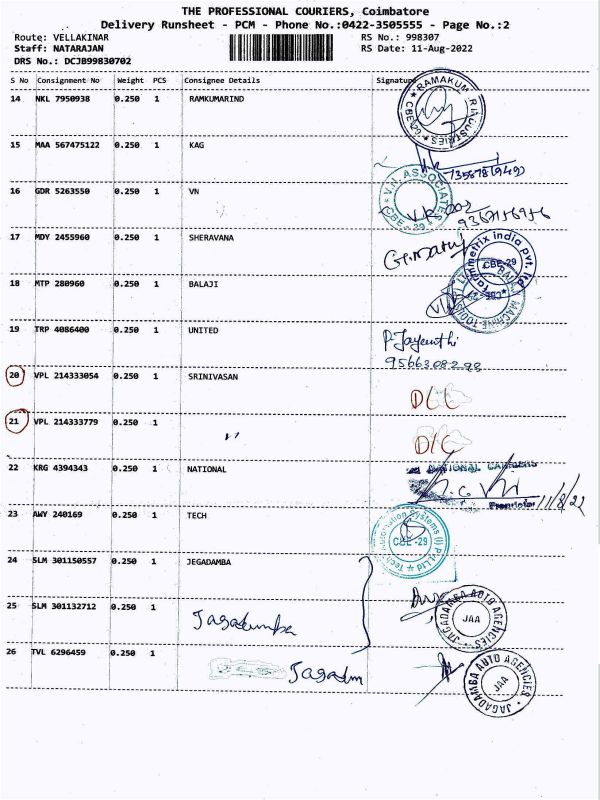 THE PROFESSIONAL COURIERS, Coimbatore
Delivery Runsheet - PCM - Phone No.:0422-3505555 - Page No.:2
Route: VELLAKINAR RS No.: 998307
Staff: NATARAJAN RS Date: 11-Aug-2022
DRS No.: DCJB99830702
S No Consignment No Weight PCS Consignee Details Signature
14 NKL 7950938 0.250 1 RAMKUMARIND
RAMAKUM R INDUSTRIES CBE-29
15 MAA 567475122 0.250 1 KAG
16 GDR 5263550 0.250 1 VN
V.N. ASSOCIATES CBE-29
17 MDY 2455960 0.250 1 SHERAVANA
farmmetrix india pvt. ltd CBE-29
18 MTP 280960 0.250 1 BALAJI
19 TRP 4086400 0.250 1 UNITED
P. Jayanthi
20 VPL 214333054 0.250 1 SRINIVASAN
21 VPL 214333779 0.250 1 "
D/C
22 KRG 4394343 0.250 1 NATIONAL
NATIONAL CARRIERS
Proprietor 11/8/22
23 AWY 240169 0.250 1 TECH
CBE-29
24 SLM 301150557 0.250 1 JEGADAMBA
25 SLM 301132712 0.250 1 Jagadamba
JAGADAMBA AUTO AGENCIES JAA
26 TVL 6296459 0.250 1
JAGADAMBA AUTO AGENCIES JAA